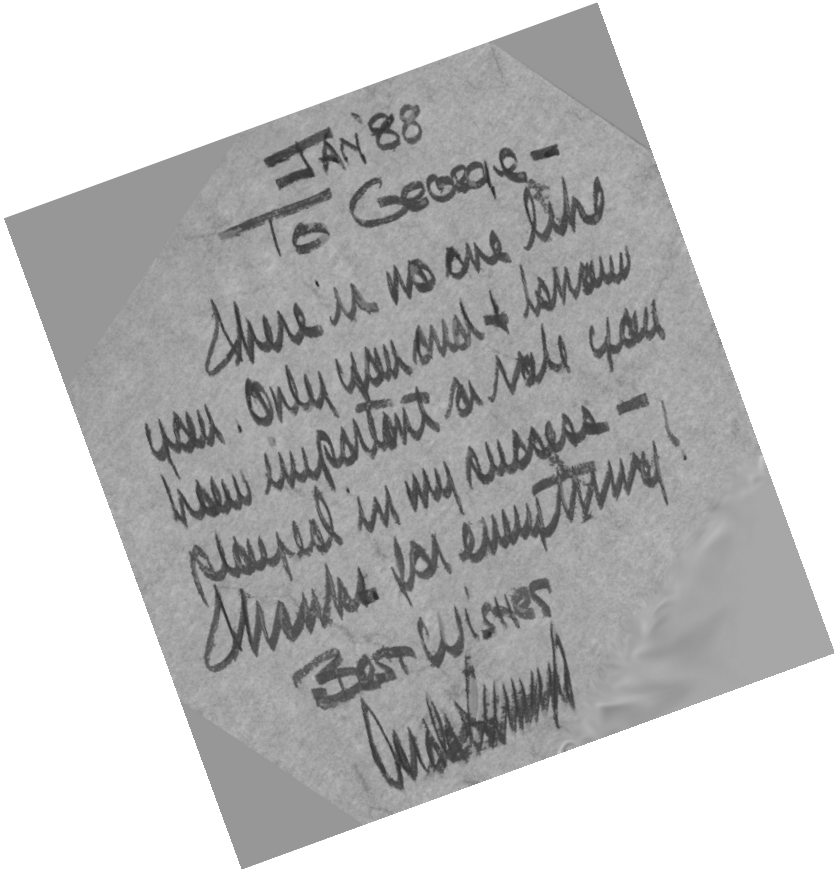 JAN '88
To George -
There is no one like
you. Only you and I know
how important a role you
played in my success -
Thanks for everything!
Best Wishes